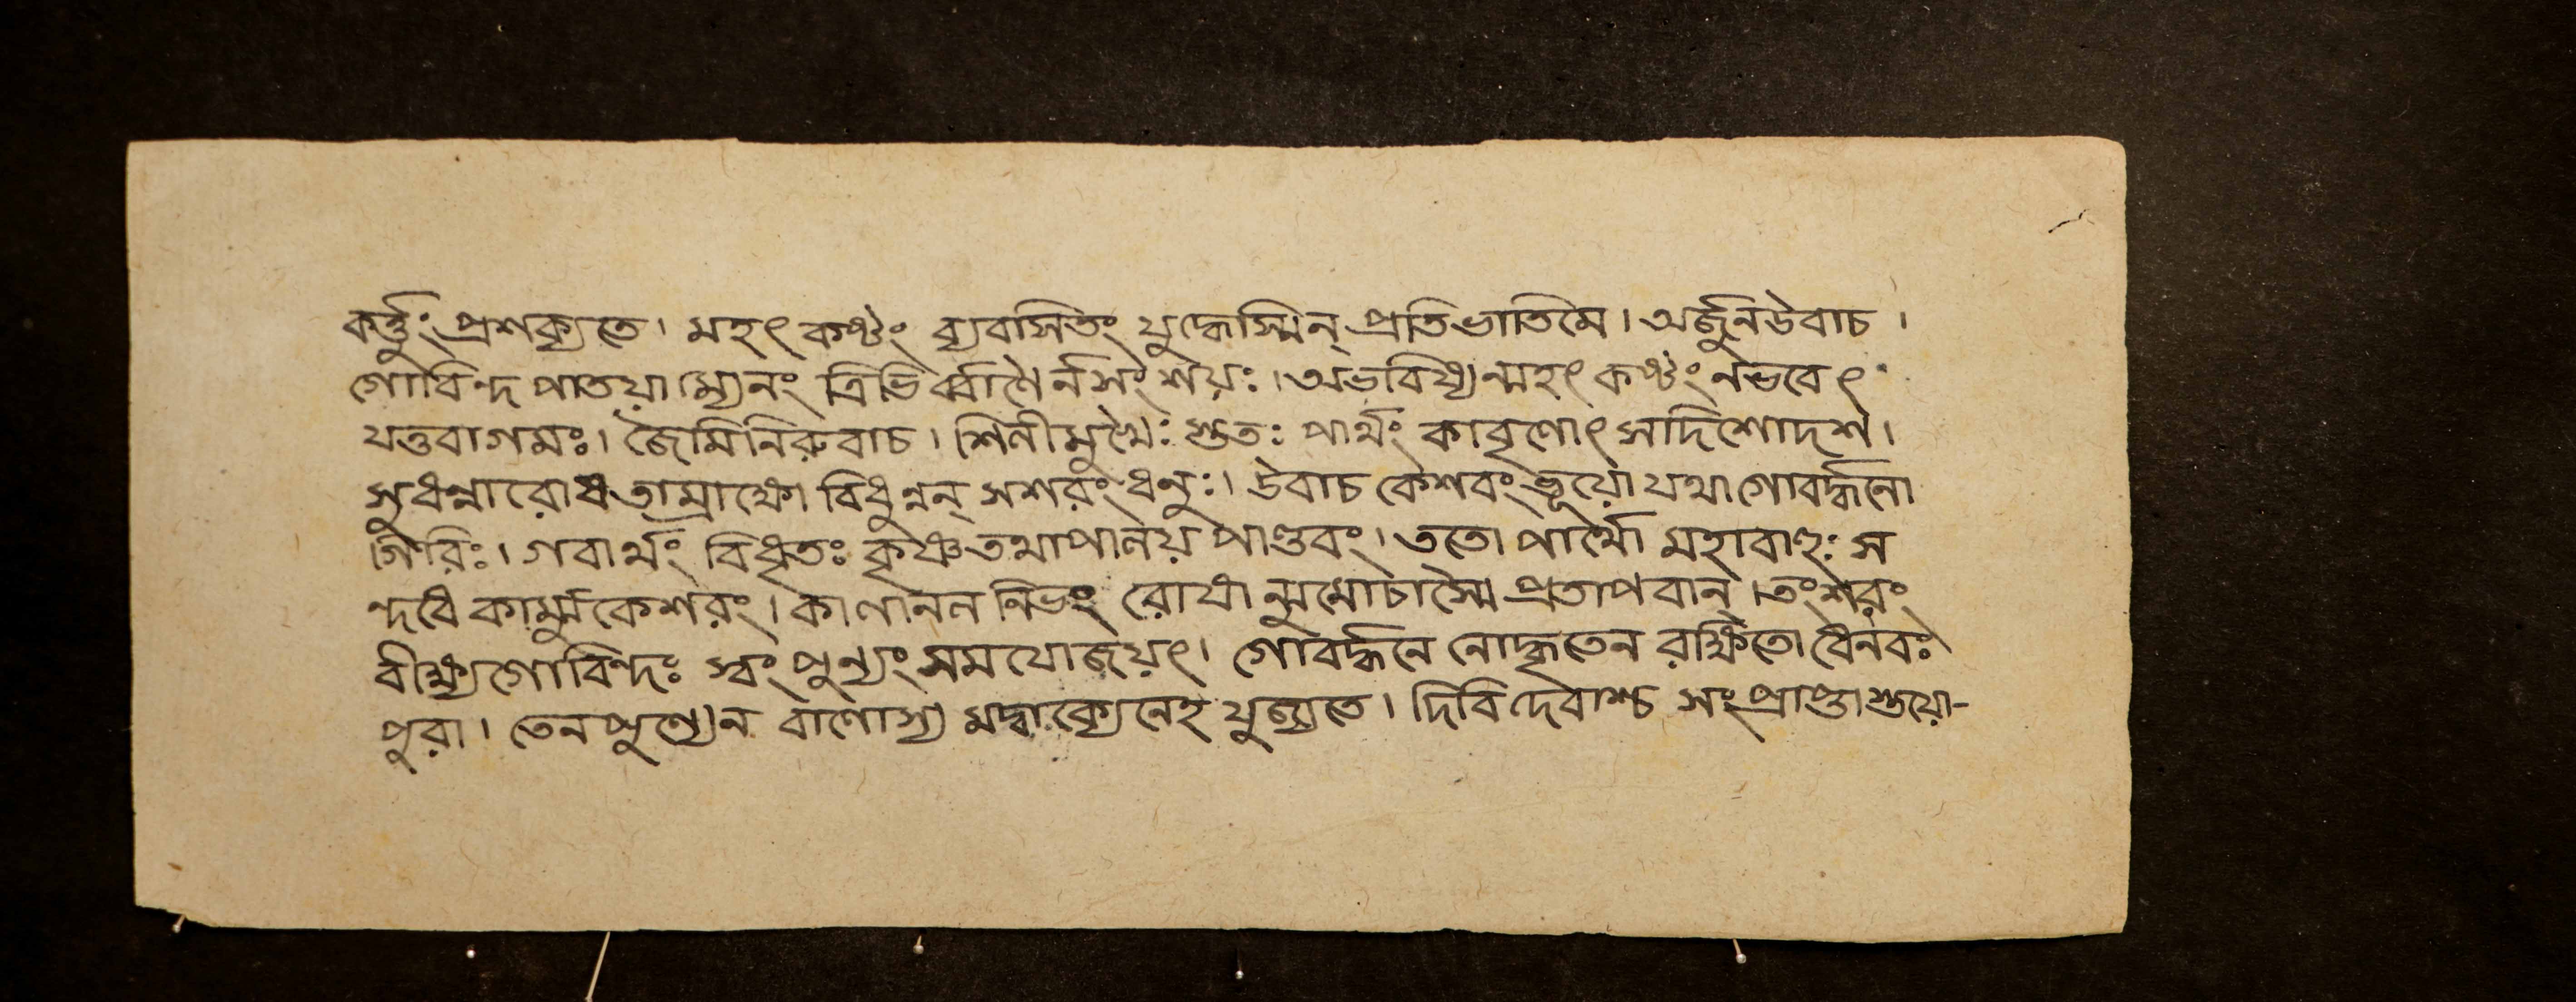 কর্ত্তুং প্রশক্যতে। মহৎ কষ্টং ব্যবসিতং যুদ্ধেস্মিন্ প্রতিভাতিমে। অর্জুনউবাচ।
গোবিন্দ পাতয়াম্যেনং ত্রিভির্ব্বাণৈর্নসংশয়ঃ। অভবিষ্যন্মহৎ কষ্টং নভবেৎ
যত্তবাগমঃ। জৈমিনিরুবাচ। শিনীমুখৈঃ শুতঃ পার্থং কাবৃণোৎ সাদিশোদশ।
সুধন্বারোষতাম্রাক্ষো বিধুন্বন্ সশরং ধনুঃ। উবাচ কেশবং ভূয়ো যথাগোবর্দ্ধনো
গিরিঃ। গবার্থং বিধৃতঃ কৃষ্ণ তথাপালয় পাণ্ডবং। ততো পার্থো মহাবাহুঃ স
ন্দধে কার্ম্মুকেশরং। কালানল নিভং রোষান্মুমোচাস্মৈ প্রতাপবান্। তংশরং
বীক্ষ্যগোবিন্দঃ স্বং পুন্যং সমযোজয়ৎ। গোবর্দ্ধনে নোদ্ধৃতেন রক্ষিতো ধেনবঃ
পুরা। তেনপুণ্যেন বাণোস্য মদ্বাক্যেনেহ যুজ্যতে। দিবি দেবাশ্চ সংপ্রাপ্তাস্তয়ো-